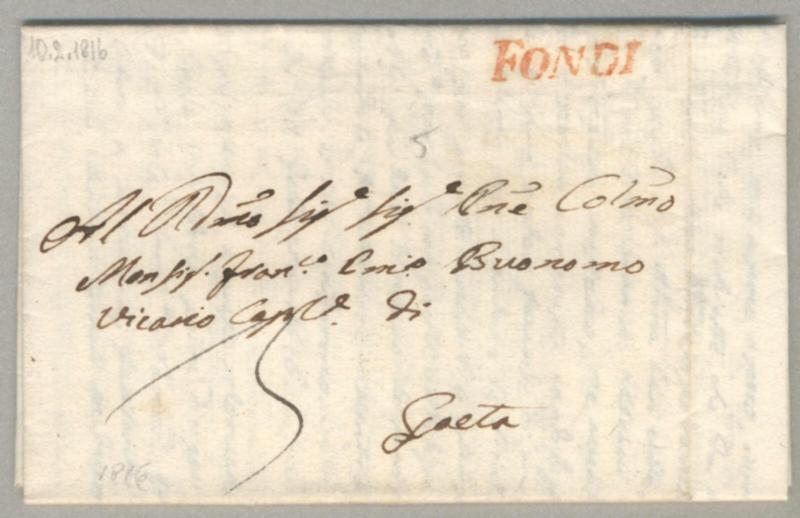 10.2.1816
FONDI
5
Al Rdmo Sigr Sigr Pne Colmo
Monsigr. Franco Buonomo
Vicario Capre di
Gaeta
1816